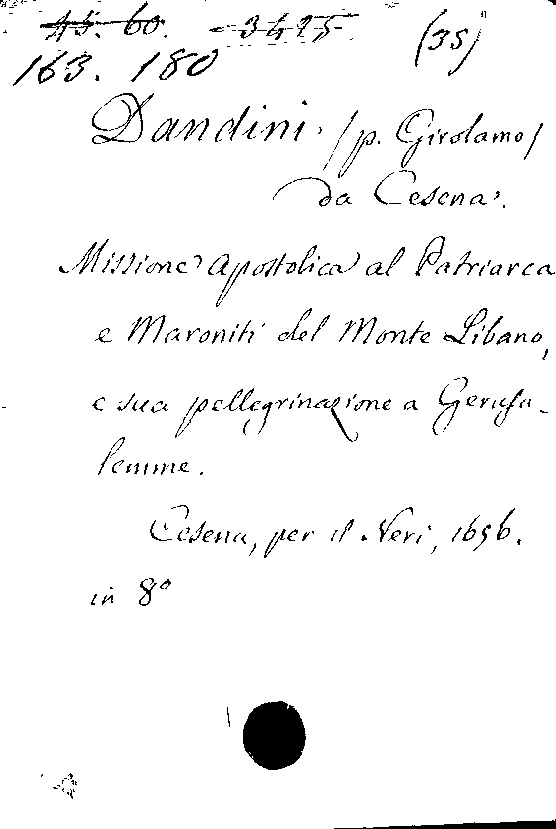 45. 60. - 3425 (35)
163. 180
Dandini. /p. Girolamo/
da Cesena.
Missione Apostolica al Patriarca
e Maroniti del Monte Libano,
e sua pellegrinazione a Gerusa-
lemme.
Cesena, per il Neri, 1656.
in 8º